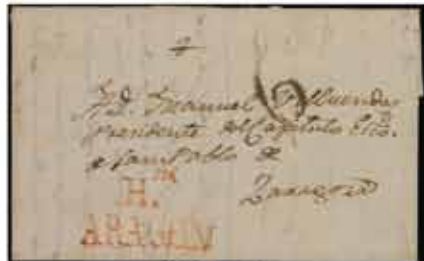 A D. Manuel
Presidente del Capitulo Ecco.
de San Pablo de
Zaragoza
H.
ARAGON